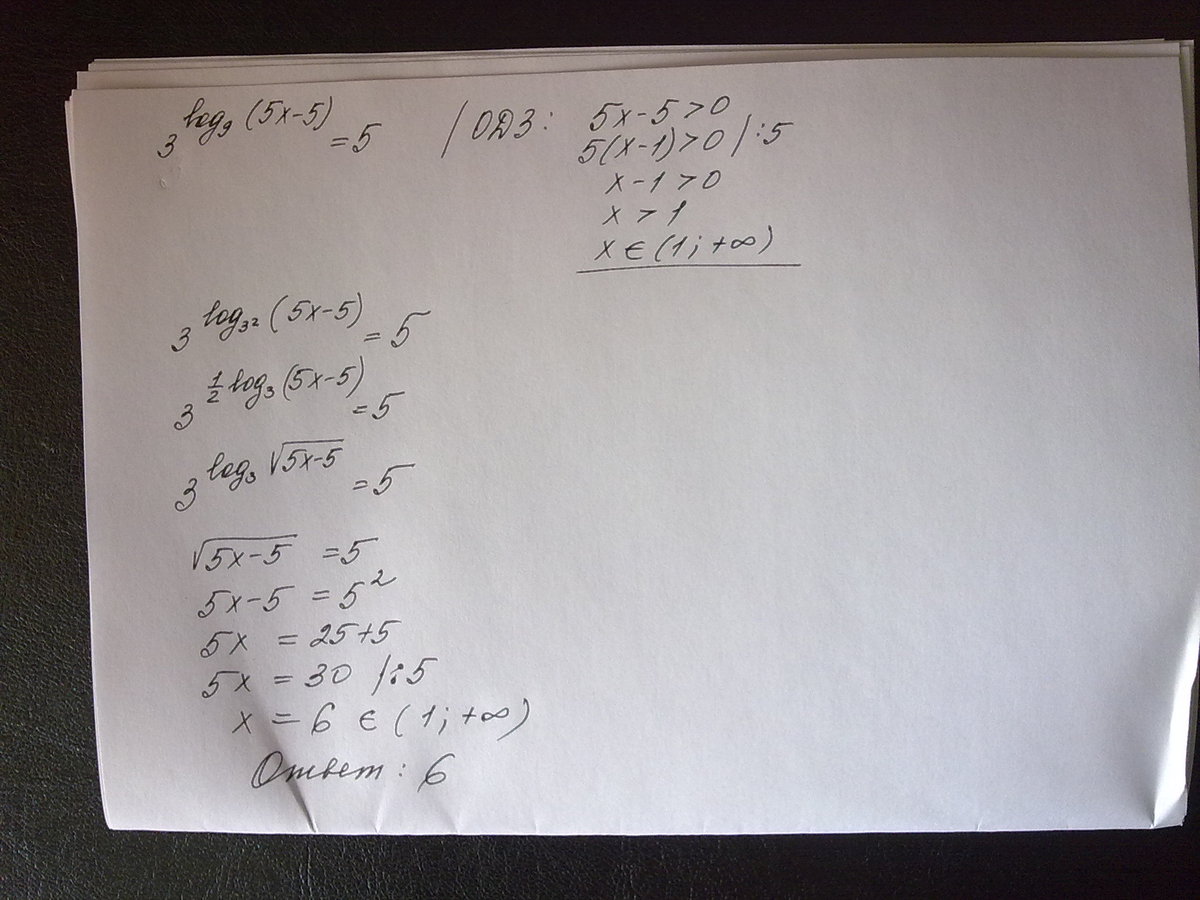 3^{log_9 (5x-5)} = 5 / ОДЗ: 5x-5>0
5(x-1)>0 /:5
x-1>0
x>1
x∈(1;+∞)
3^{log_{3^2} (5x-5)} = 5
3^{\frac{1}{2} log_3 (5x-5)} = 5
3^{log_3 √(5x-5)} = 5
√(5x-5) = 5
5x-5 = 5^2
5x = 25+5
5x = 30 /:5
x = 6 ∈ (1;+∞)
Ответ: 6